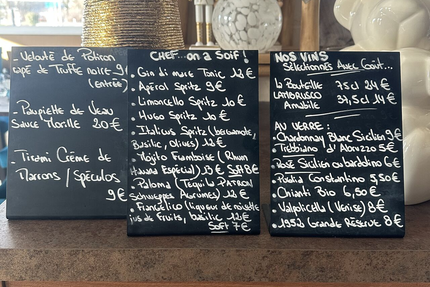 - Velouté de Potiron
tapé de Truffe noire 9€
(entrée)
- Paupiette de Veau
Sauce Morille 20€
- Tiramisu Crème de
Marrons / Spéculos
9€
CHEF... on a Soif !
• Gin di mare Tonic 12€
• Apérol Spritz 9€
• Limoncello Spritz 10€
• Hugo Spritz 10€
• Italicus Spritz (bergamote,
Basilic, olives) 12€
• Mojito Framboise (Rhum
Havana Especial) 13€ Soft 8€
• Paloma (Tequila PATRON
Schweppes Agrumes) 12€
• Frangelico (liqueur de noisette
jus de fruits, basilic 12€
Soft 7€
NOS VINS
Sélectionnés Avec Goût...
La Bouteille 75cl 24€
LAMBRUSCO
Amabile 37,5cl 14€
AU VERRE :
• Chardonnay Blanc Sicilien 9€
• Trebbiano d'Abruzzo 5€
• Rosé Sicilien 6€
• Costantino 5,50€
• Chianti Bio 6,50€
• Valpolicella (Venise) 8€
• 1952 Grande Réserve 8€